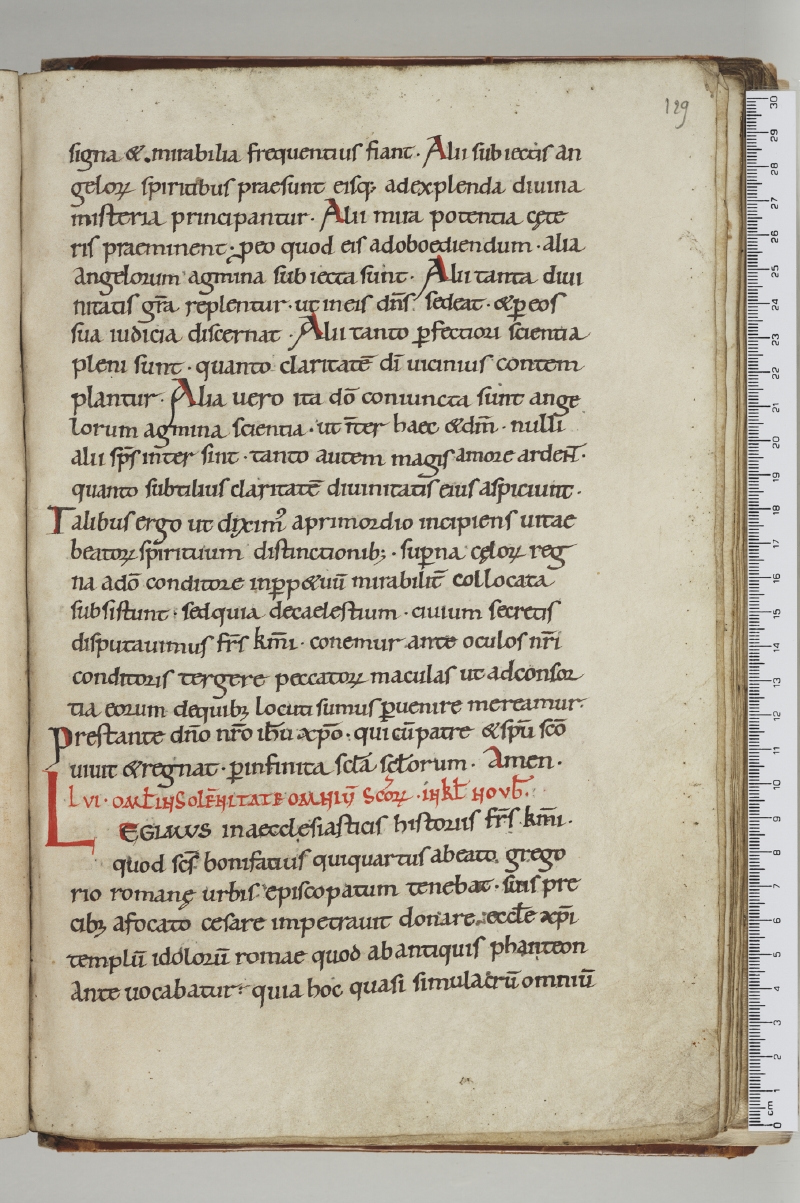 129
signa &. mirabilia frequentius fiant. Alii subiectis an
geloꝝ spiritibus praesunt eisq; adexplenda diuina
misteria principantur. Alii mira potentia cęte
ris praeminent. ꝓeo quod eis adoboediendum. alia
angelorum agmina subiecta sunt. Alii tanta diui
nitatis gr̄a replentur. ut ineis dn̄s. sedeat. &ꝑeos
sua iudicia discernat. Alii tanto ꝑfectiori scientia
pleni sunt. quanto claritatē dī uicinius contem
plantur. Alia uero ita dō coniuncta sunt ange
lorum agmina scientia. ut īter haec &dm̄. nulli
alii sp̄s inter sint. tanto autem magis amore ardeN̄t.
quanto subtilius claritatē diuinitatis eius aspiciunt.
Talibus ergo ut diximꝰ aprimordio incipiens uitae
beatoꝝ spirituum distinctionib;. suꝑna cęloꝝ reg
na adō conditore inꝑp&uū mirabilit̄ collocata
subsistunt. sedquia decaelestium. ciuium secretis
disputauimus fr̄s km̄i. conemur ante oculos nr̄i
conditoris tergere peccatoꝝ maculas ut adconsor
tia eorum dequib; locuti sumus ꝑuenire mereamur.
Prestante dn̄o nr̄o ih̄u xp̄o. qui cū patre &sp̄u sc̄o
uiuit &regnat. ꝑinfinita sc̄la sc̄lorum. Amen.
LVI. OML̄ IN SOLĒNITATE OMNIŪ SCŌꝝ. IN KL̄ NOVB̄.
LEGIMUS inaecclesiasticis historiis fr̄s km̄i.
quod sc̄s bonifatius quiquartus abeato grego
rio romanę urbis episcopatum tenebat. suis pre
cib; afocato cesare impetrauit donare. eccl̄e xp̄i
templū idolorū romae quod abantiquis phanteon
Ante uocabatur. quia hoc quasi simulacrū omniū